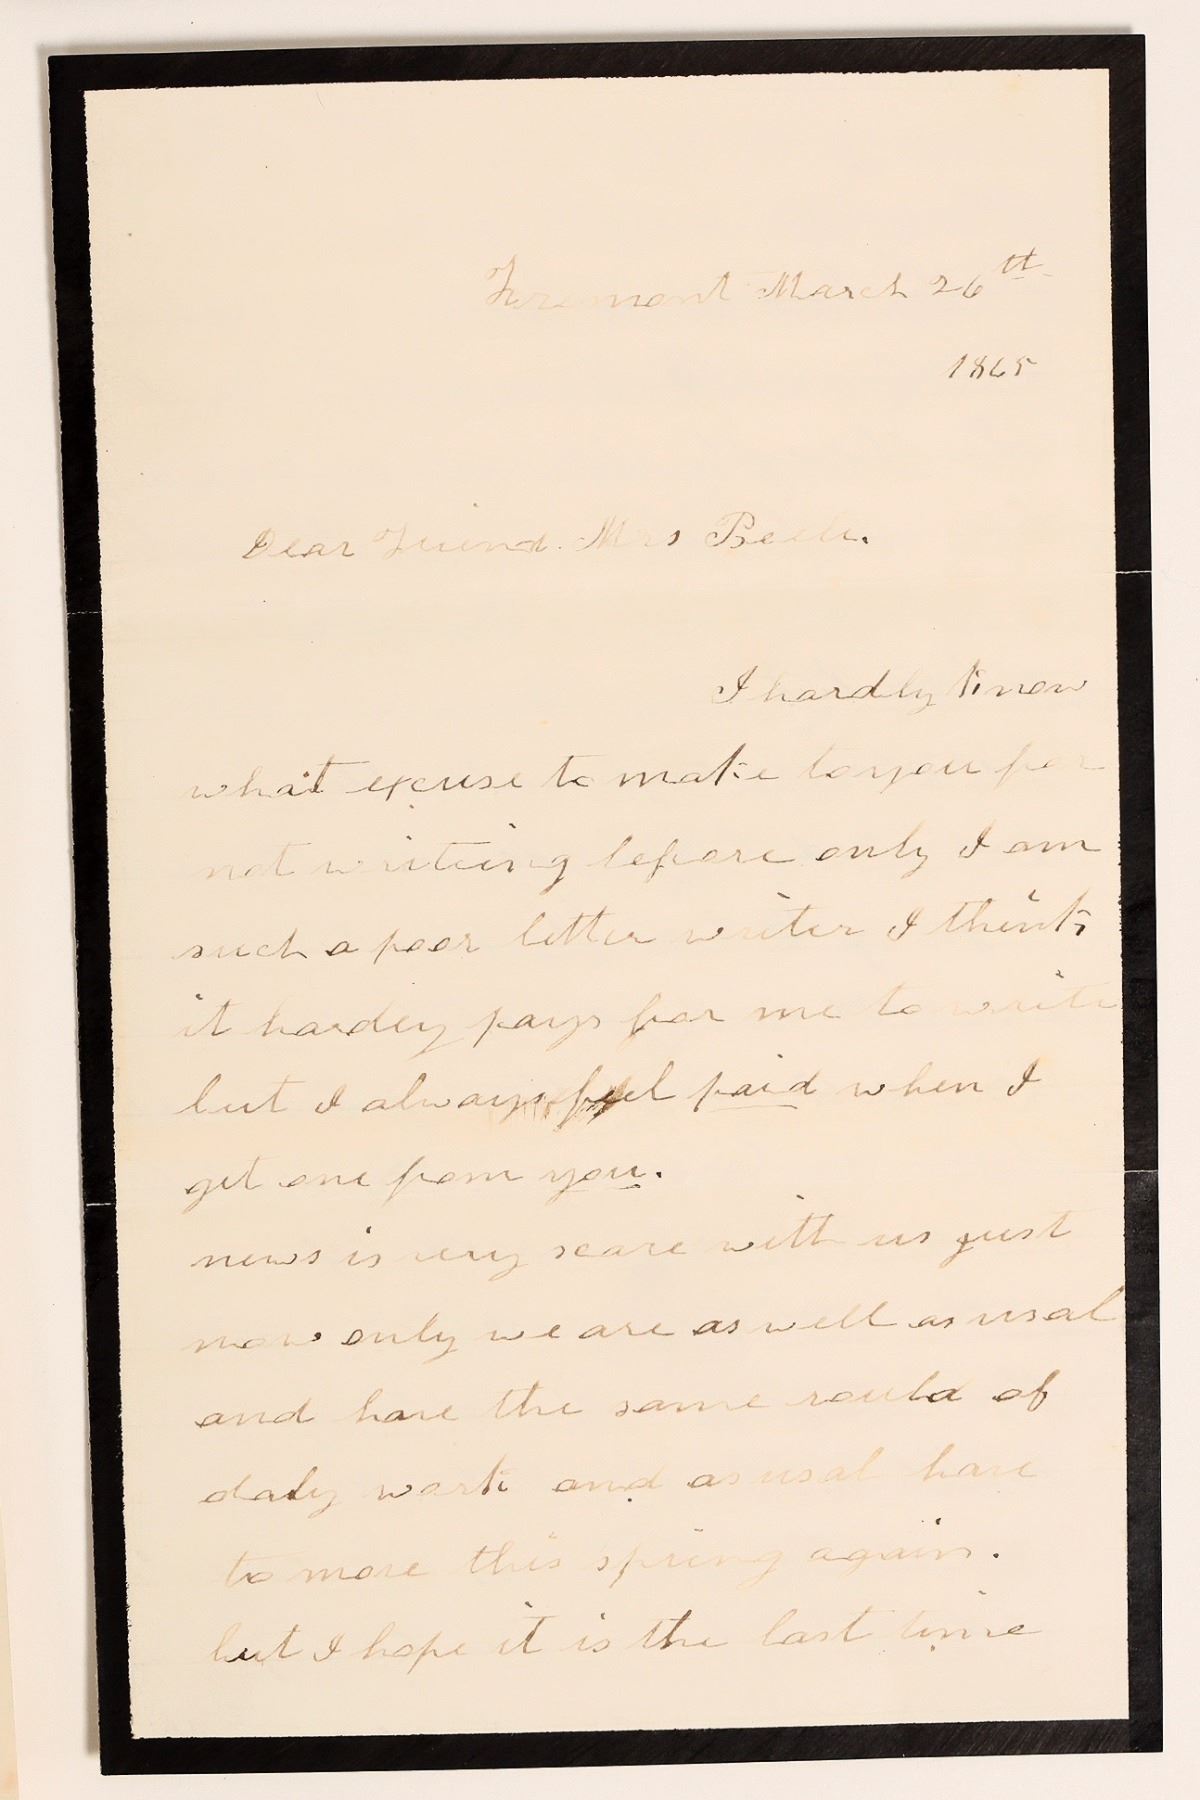 Fremont March 26th
1865
Dear Friend. Mrs
I hardly know
what excuse to make to you for
not writeing before only I am
such a poor letter writer I think
it hardey pays for me to write
but I always feel paid when I
get one from you.
news is very scare with us just
now only we are as well as usal
and have the same rould of
daly work and as usal have
to move this spring again.
but I hope it is the last time